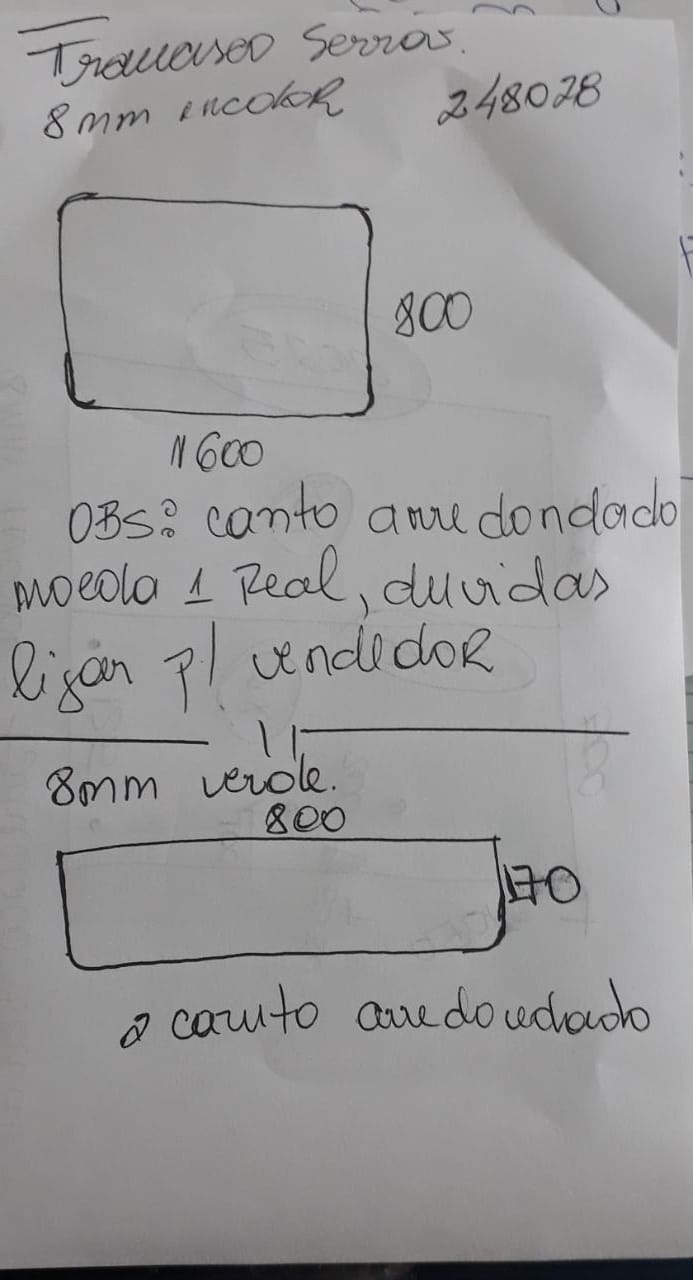 Francisco Serras.
8mm incoloR 248028
800
1600
OBS: canto arredondado
moeda 1 Real, duvidas
ligar p/ vendedoR
8mm verde.
800
170
2 canto arredondado